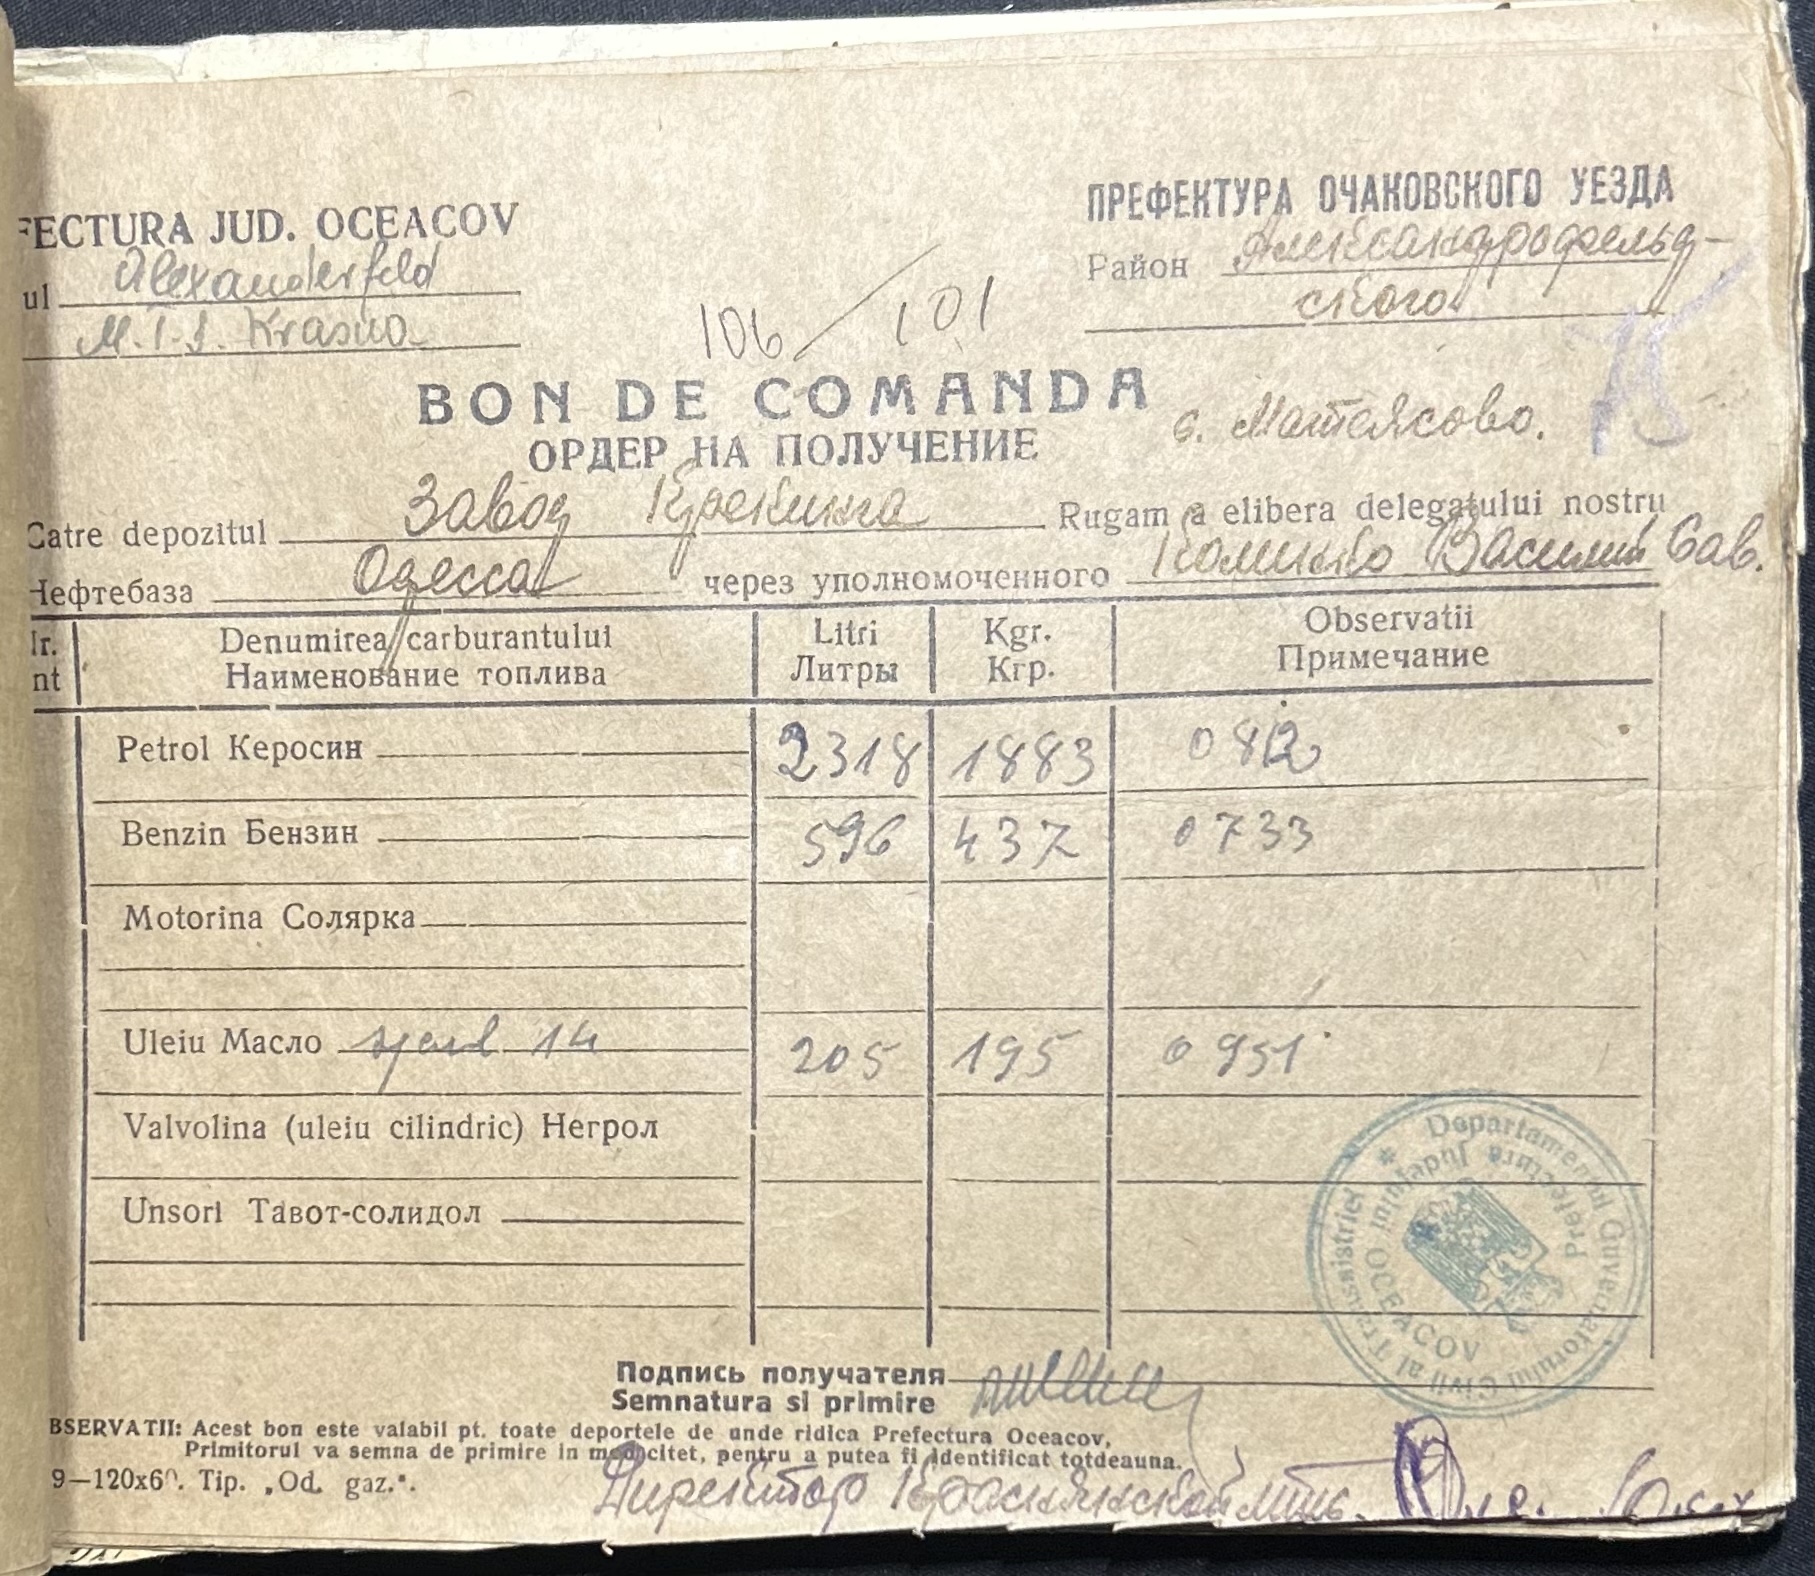 FECTURA JUD. OCEACOV
ПРЕФЕКТУРА ОЧАКОВСКОГО УЕЗДА
ul Alexanderfeld
Район Александрофельд-
ского
M.T.S. Krasna
106 / 101
75
BON DE COMANDA
ОРДЕР НА ПОЛУЧЕНИЕ
с. Матясово.
Catre depozitul Завод Крекинга Rugam a elibera delegatului nostru
Нефтебаза Одесса через уполномоченного Василий Сав.
Nr. Denumirea carburantului Litri Kgr. Observatii
nt Наименование топлива Литры Кгр. Примечание
Petrol Керосин 2318 1883 0812
Benzin Бензин 596 437 0733
Motorina Солярка
Uleiu Масло 14 205 195 0951
Valvolina (uleiu cilindric) Негрол
Unsori Тавот-солидол
Departamentul Guvernatorului Civil al Transnistriei
Prefectura Judeţului OCEACOV
Подпись получателя
Semnatura si primire
BSERVATII: Acest bon este valabil pt. toate deportele de unde ridica Prefectura Oceacov,
Primitorul va semna de primire in mod citet, pentru a putea fi identificat totdeauna.
9—120x60. Tip. „Od. gaz.".
Директор Краснянской мтс.